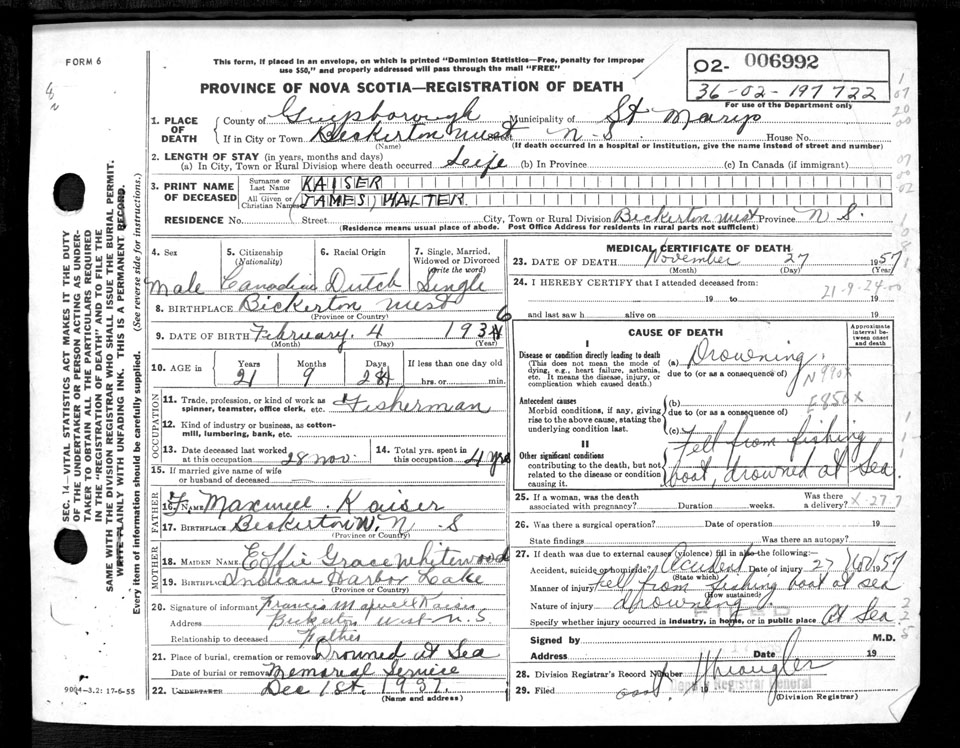 FORM 6
This form, if placed in an envelope, on which is printed "Dominion Statistics—Free, penalty for improper
use $50," and properly addressed will pass through the mail "FREE"
02- 006992
36-02-197722
For use of the Department only
PROVINCE OF NOVA SCOTIA—REGISTRATION OF DEATH
1. PLACE OF DEATH
County of Guysborough Municipality of St Marys
If in City or Town Bickerton West N-S. House No.
(Name) (If death occurred in a hospital or institution, give the name instead of street and number)
2. LENGTH OF STAY (in years, months and days)
(a) In City, Town or Rural Division where death occurred Life (b) In Province (c) In Canada (if immigrant)
3. PRINT NAME OF DECEASED
Surname or Last Name KAISER
All Given or Christian Names JAMES, WALTER.
RESIDENCE No. Street City, Town or Rural Division Bickerton West Province N S.
(Residence means usual place of abode. Post Office Address for residents in rural parts not sufficient)
4. Sex 5. Citizenship (Nationality) 6. Racial Origin 7. Single, Married, Widowed or Divorced (Write the word)
Male Canadian Dutch Single
8. BIRTHPLACE Bickerton West
(Province or Country)
9. DATE OF BIRTH February. 4 193 6
(Month) (Day) (Year)
10. AGE in Years Months Days If less than one day old
21 9 hrs. or min.
OCCUPATION
11. Trade, profession, or kind of work as spinner, teamster, office clerk, etc. Fisherman
12. Kind of industry or business, as cotton-mill, lumbering, bank, etc.
13. Date deceased last worked at this occupation 28 Nov. 14. Total yrs. spent in this occupation 4 yrs
15. If married give name of wife or husband of deceased
FATHER
16. NAME F. Maxwell Kaiser
17. BIRTHPLACE Bickerton W. N-S
(Province or Country)
MOTHER
18. MAIDEN NAME Effie Grace Whitewood
19. BIRTHPLACE Indian Harbor Lake
(Province or Country)
20. Signature of informant Francis Maxwell Kaiser
Address Bickerton West N.S
Relationship to deceased Father
21. Place of burial, cremation or removal Drowned At Sea
Date of burial or removal Memorial Service
22. UNDERTAKER Dec 1st. 1957.
(Name and address)
9004-3.2: 17-6-55
MEDICAL CERTIFICATE OF DEATH
23. DATE OF DEATH November 27 1957
(Month) (Day) (Year)
24. I HEREBY CERTIFY that I attended deceased from: 21-9-24-00
19 to 19
and last saw h alive on 19
CAUSE OF DEATH
Approximate interval between onset and death
I
Disease or condition directly leading to death
(This does not mean the mode of dying, e.g., heart failure, asthenia, etc. It means the disease, injury, or complication which caused death.)
(a) Drowning.
due to (or as a consequence of) N990X
Antecedent causes
Morbid conditions, if any, giving rise to the above cause, stating the underlying condition last.
(b) E850X
due to (or as a consequence of)
(c)
II
Other significant conditions
contributing to the death, but not related to the disease or condition causing it.
Fell from fishing
boat, drowned at Sea.
25. If a woman, was the death associated with pregnancy? Duration weeks. Was there a delivery? X-27.7
26. Was there a surgical operation? Date of operation 19
State findings Was there an autopsy?
27. If death was due to external causes (violence) fill in also the following:
Accident, suicide or homicide? Accident Date of injury 27 Nov 1957
(State which)
Manner of injury Fell from fishing boat at sea
(How sustained)
Nature of injury drowning.
Specify whether injury occurred in industry, in home, or in public place At Sea
Signed by M.D.
Address Date 19
28. Division Registrar's Record Number
29. Filed 19
(Division Registrar)
Registrar General
SEC. 14—VITAL STATISTICS ACT MAKES IT THE DUTY
OF THE UNDERTAKER OR PERSON ACTING AS UNDER-
TAKER TO OBTAIN ALL THE PARTICULARS REQUIRED
IN THE "REGISTRATION OF DEATH" AND TO FILE THE
SAME WITH THE DIVISION REGISTRAR WHO SHALL ISSUE THE BURIAL PERMIT.
WRITE PLAINLY WITH UNFADING INK. THIS IS A PERMANENT RECORD.
Every item of information should be carefully supplied. (See reverse side for instructions.)